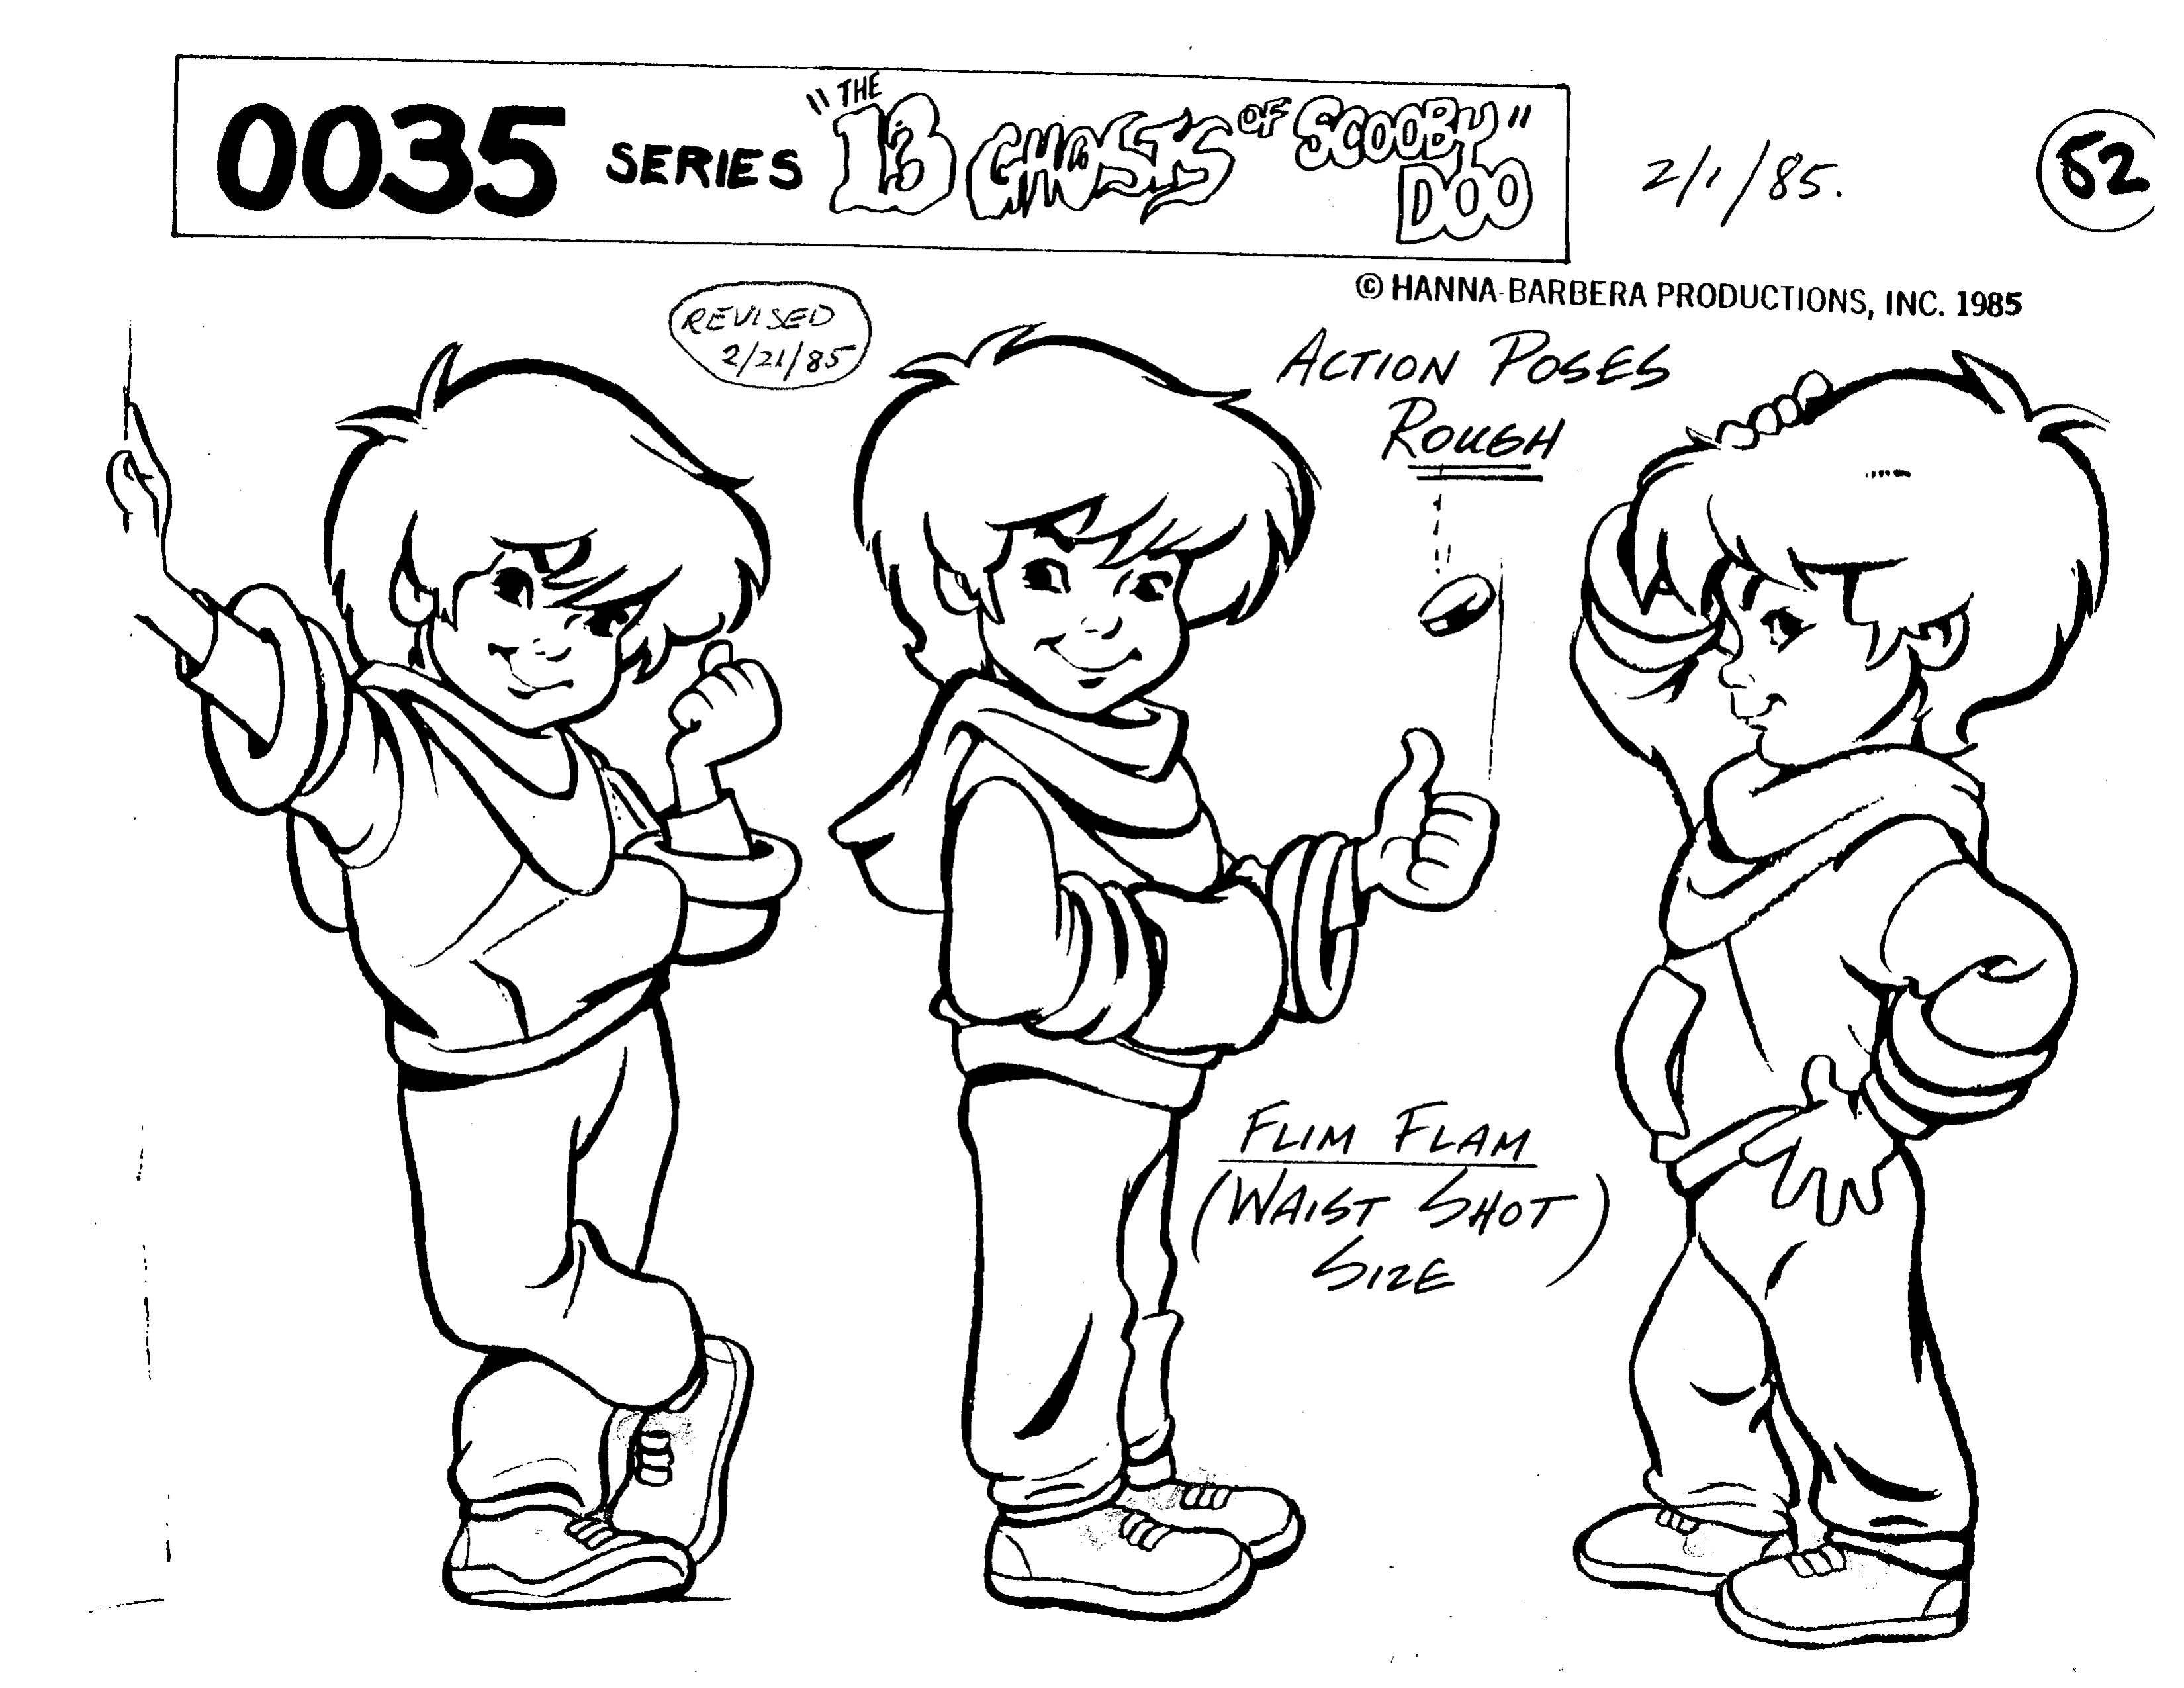 0035 SERIES "THE 13 GHOSTS OF SCOOBY DOO"
2/1/85.
52
© HANNA-BARBERA PRODUCTIONS, INC. 1985
REVISED
2/21/85
ACTION POSES
ROUGH
FLIM FLAM
(WAIST SHOT
SIZE)